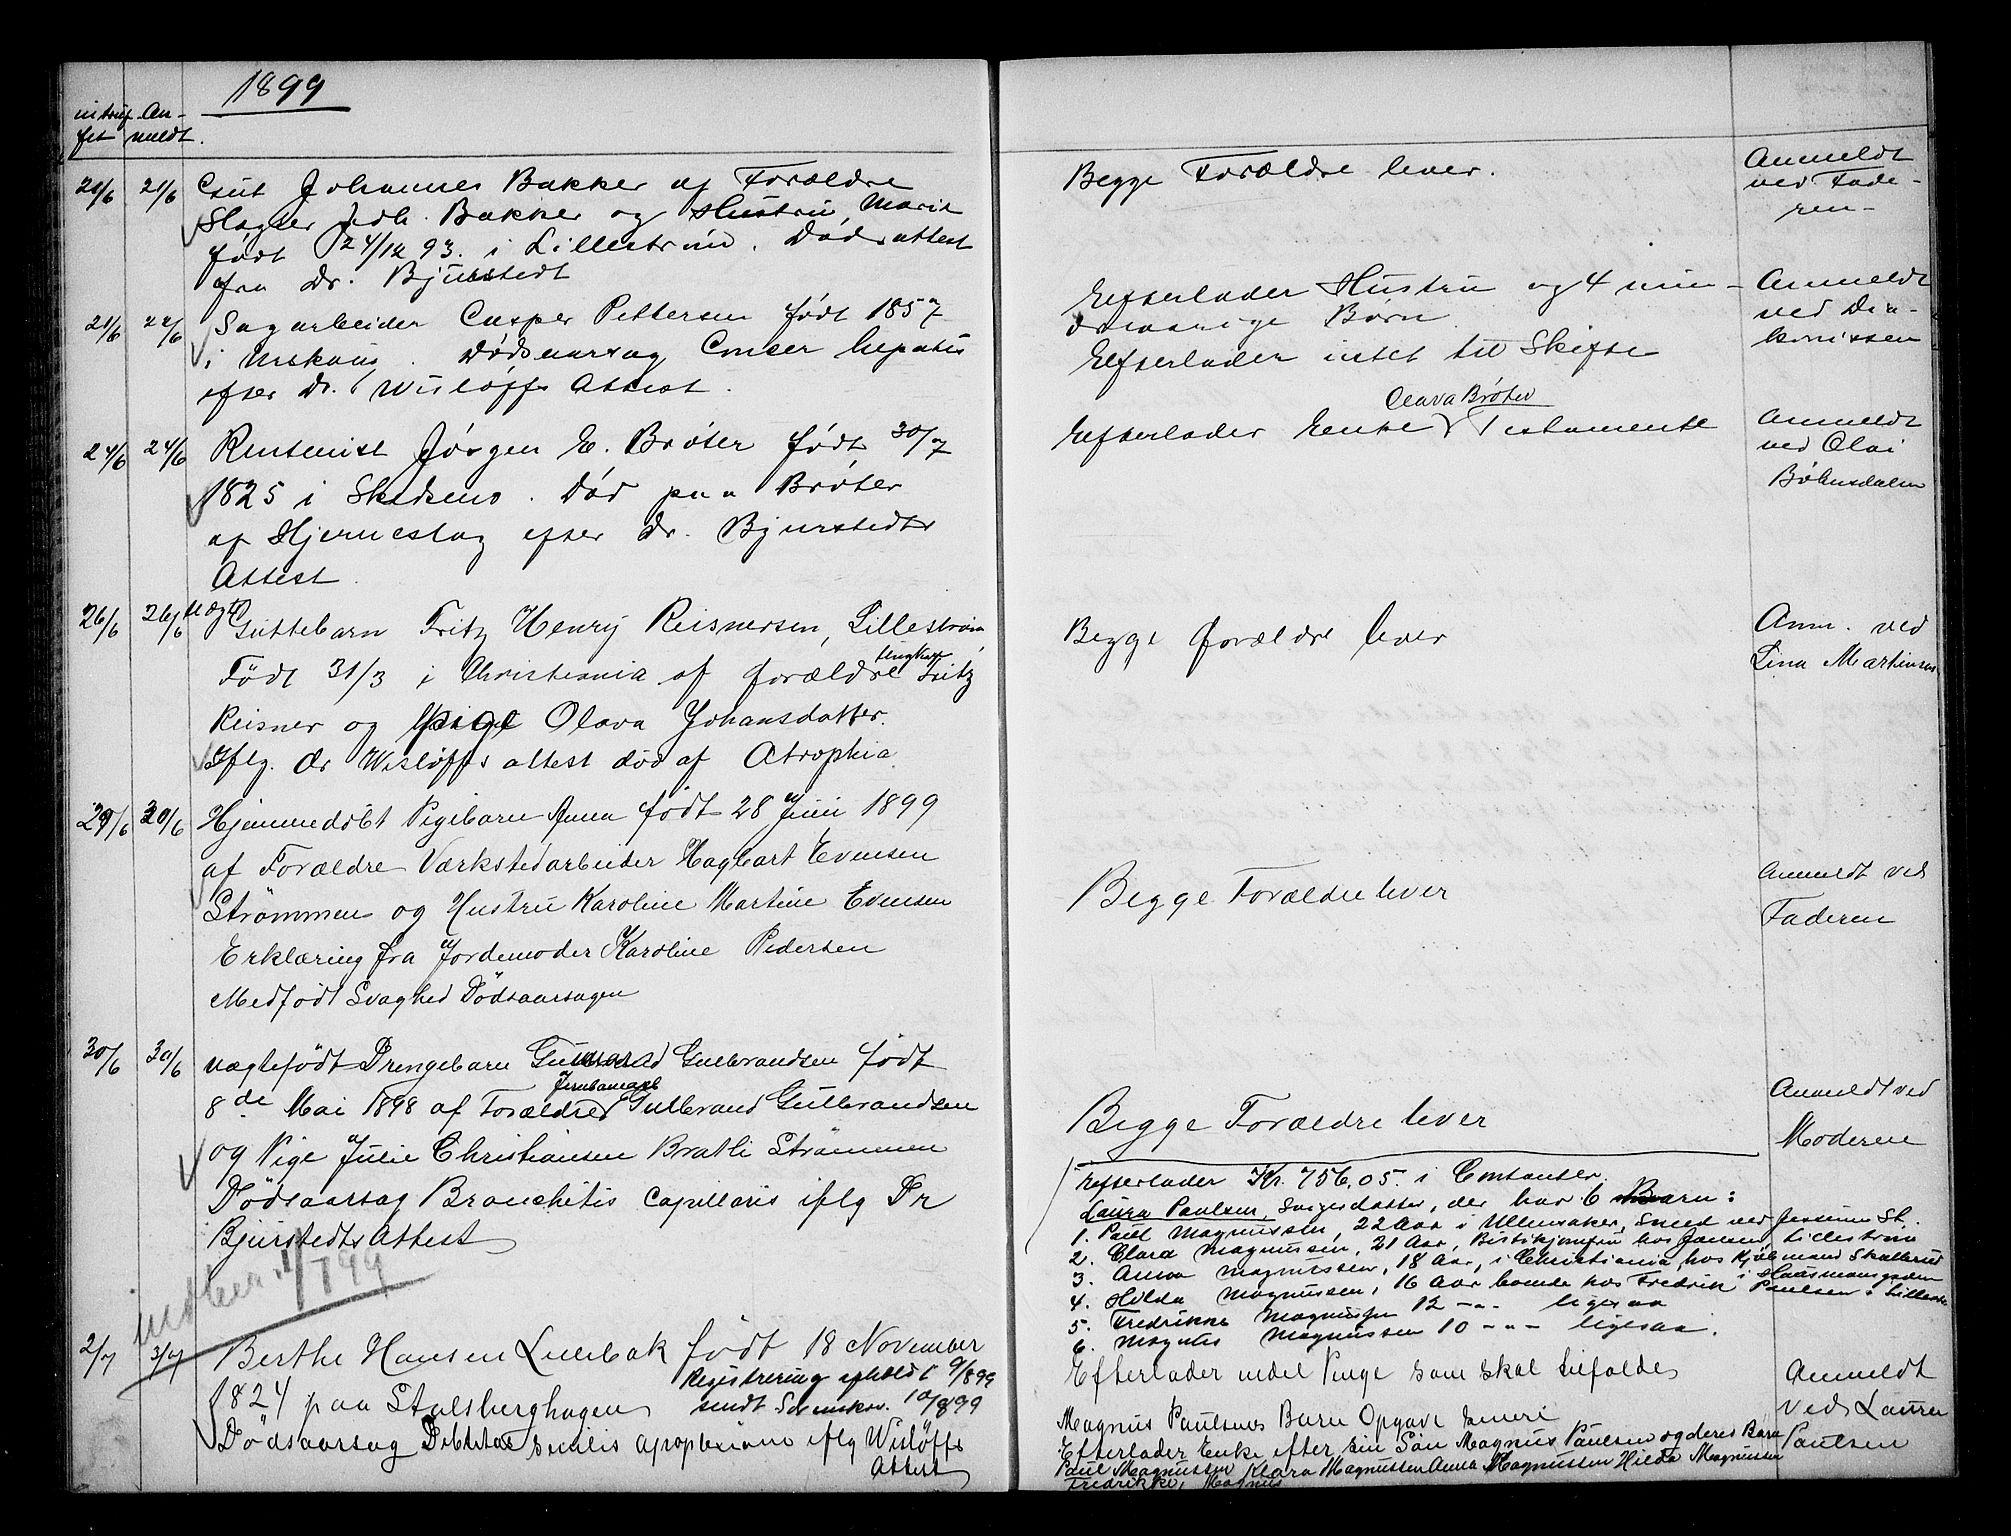 1899
intruf An-
fet meldt.
21/6 21/6 Gut Johannes Bakker af Forældre
Slagter Joh. Bakker og Hustru Marie
født 24/12 93. i Lillestrøm. Dødsattest
fra Dr. Bjurstedt
Begge Forældre lever.
Anmeldt
ved Fade-
ren
21/6 22/6 Sagarbeider Casper Pettersen født 1857
i Urskoug. Dødsaarsag Cancer hepatis
efter Dr. Wisløffs Attest.
Efterlader Hustru og 4 min-
dreaarige Børn.
Efterlader intet til Skifte
Anmeldt
ved Dia-
konissen
24/6 24/6 Rentenist Jørgen E. Brøter født 30/7
1825 i Skedsmo. Død paa Brøter
af Hjerneslag efter Dr. Bjurstedts
Attest.
Clara Brøter
Efterlader Enke Testamente
Anmeldt
ved Olai
Böhnsdalen
26/6 26/6 uægte
Guttebarn Fritz Henry Reisnersen, Lillestrøm,
Født 31/3 i Christiania af forældre Ungkarl Fritz
Reisner og pige Olava Johansdatter.
Iflg. dr Wisløffs attest død af Atrophia.
Begge forældre lever
Anm. ved
Lina Martinsen
29/6 30/6 Hjemmedøbt Pigebarn Anna født 28 Juni 1899
af Forældre Værkstedarbeider Hagbart Evensen
Strømmen og Hustru Karoline Martine Evensen
Erklæring fra Jordemoder Karoline Pedersen
Medfødt Svaghed Dødsaarsagen
Begge Forældre lever
Anmeldt ved
Faderen
30/6 30/6 uægtefødt Drengebarn Gunnar Gulbrandsen født
8de Mai 1898 af Forældre Jernbanearb Gulbrand Gulbrandsen
og Pige Julie Christiansen Bratli Strømmen
Dødsaarsag Bronchitis capillaris iflg Dr
Bjurstedts Attest
Begge Forældre lever
Anmeldt ved
Moderen
Efterlader Kr. 756.05. i Contanter.
Laura Paulsen, Svigerdatter, der har 6 Børn:
1. Paul Magnussen, 22 Aar i Ullensaker, Smed ved Jessheim St.
2. Clara Magnussen, 21 Aar, Butikjomfru hos Jansen, Lillestrøm
3. Anna Magnussen, 18 Aar, i Christiania, hos Kjøbmand Skallerud
4. Hilda Magnussen, 16 Aar boende hos Fredrik Paulsen i Lillestr
5. Fredrikke Magnussen 12 -"- ligesaa
6. Magnus Magnussen 10 -"- ligesaa.
1/7 99
2/7 3/7 Berthe Hansen Luerbak født 18 November
1824 paa Stalsberghagen
Registrering afholdt 9/8 99
sendt Sorenskr. 10/8 99
Dødsaarsag Debilitas senilis apoplexiam iflg Wisløffs
Attest
Efterlader endel Penge som skal tilfalde
Magnus Paulsens Barn Opgave
Efterlader Enke efter sin Søn Magnus Paulsen og deres Børn
Paul Magnussen Klara Magnussen Anna Magnussen Hilda Magnussen
Fredrikke, Magnus
Anmeldt
ved Laura
Paulsen